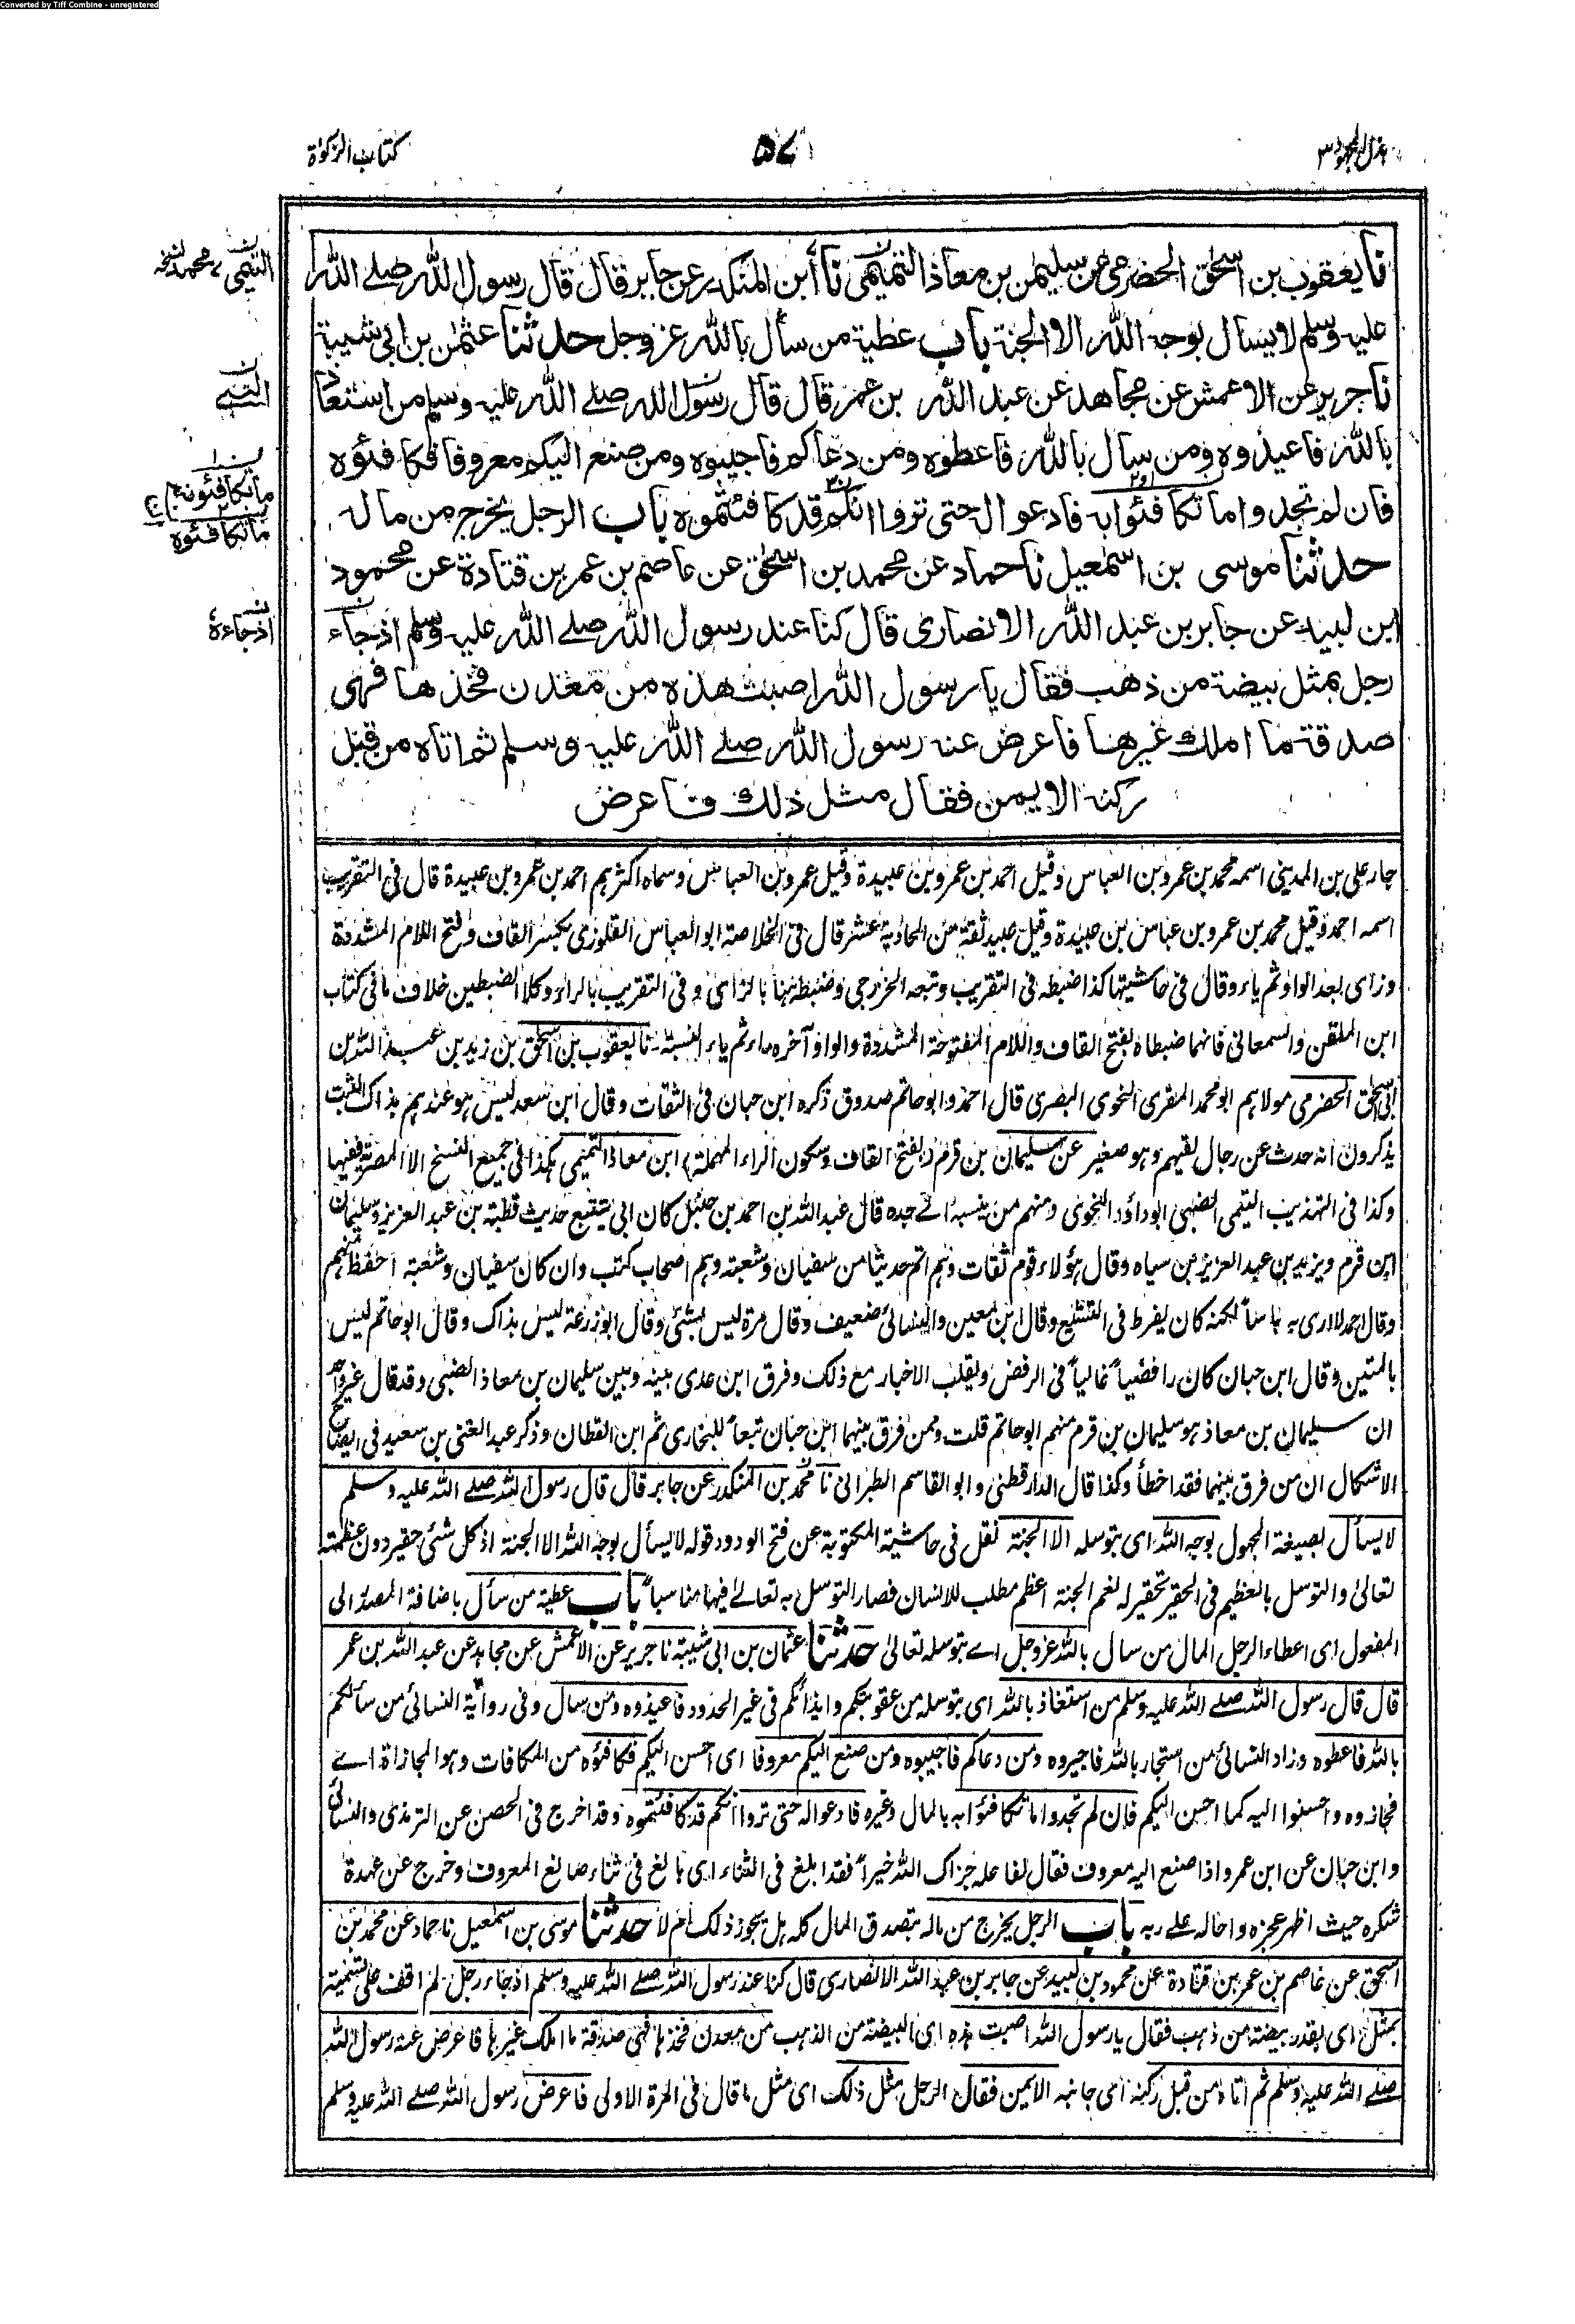 Converted by Tiff Combine - unregistered
بذل المجهود ٣
٥٧
كتاب الزكوة
نا يعقوب بن اسحق الحضرمي عن سليمن بن معاذ التميمي نا ابن المنكدر عن جابر قال قال رسول الله صلے الله
عليه وسلم لا يسأل بوجه الله الا الجنة باب عطية من سأل بالله عز وجل حدثنا عثمن بن ابي شيبة
نا جرير عن الاعمش عن مجاهد عن عبد الله بن عمر قال قال رسول الله صلے الله عليه وسلم من استعاذ
بالله فاعيذوه ومن سأل بالله فاعطوه ومن دعاكم فاجيبوه ومن صنع اليكم معروفا فكافئوه
فان لم تجدوا ما تكافئوا به فادعوا له حتى تروا انكم قد كافئتموه باب الرجل يخرج من ماله
حدثنا موسى بن اسمعيل نا حماد عن محمد بن اسحق عن عاصم بن عمر بن قتادة عن محمود
ابن لبيد عن جابر بن عبد الله الانصارى قال كنا عند رسول الله صلے الله عليه وسلم اذ جاء
رجل بمثل بيضة من ذهب فقال يا رسول الله اصبت هذه من معدن فخذها فهى
صدقة ما املك غيرها فاعرض عنه رسول الله صلے الله عليه وسلم ثم اتاه من قبل
ركنه الايمن فقال مثل ذلك فاعرض
التيمي محمد نسخه
النبي
ما تكافئونه
ما تكافئوه
اذ جاءه
جار على بن المديني اسمه محمد بن عمرو بن العباس وقيل احمد بن عمرو بن عبيدة وقيل عمرو بن العباس وسماه اكثرهم احمد بن عمرو بن عبيدة قال فى التقريب
اسمه احمد وقيل محمد بن عمرو بن عباس بن عبيدة وقيل عبيد ثقة من الحادية عشر قال فى الخلاصة ابو العباس القلوزى بكسر القاف وفتح اللام المشددة
وزاى بعد الواو ثم ياء وقال فى حاشيتها كذا ضبطه فى التقريب وتبعه الخزرجى وضبطه هنا بالزاى وفى التقريب بالراء وكلا الضبطين خلاف ما فى كتاب
ابن الملقن والسمعانى فانهما ضبطاه بفتح القاف واللام المفتوحة المشددة والواو آخره راء ثم ياء النسبة نا يعقوب بن اسحق بن زيد بن عبد الله بن
ابى اسحق الحضرمى مولاهم ابو محمد المقرى النحوى البصرى قال احمد وابو حاتم صدوق ذكره ابن حبان فى الثقات وقال ابن سعد ليس هو عندهم بذاك الثبت
يذكرون انه حدث عن رجال لقيهم وهو صغير عن سليمان بن قرم (بفتح القاف وسكون الراء المهملة) ابن معاذ التميمى هكذا فى جميع النسخ الا المصرية ففيها
وكذا فى التهذيب التيمى الضبى ابو داؤد النحوى ومنهم من ينسبه الے جده قال عبد الله بن احمد بن حنبل كان ابى يتتبع حديث قطبة بن عبد العزيز وسليمان
ابن قرم ويزيد بن عبد العزيز بن سياه وقال هؤلاء قوم ثقات وهم اتم حديثا من سفيان وشعبة وهم اصحاب كتب وان كان سفيان وشعبة احفظ منهم
وقال احمد لا ارى به بأسا لكنه كان يفرط فى التشيع وقال ابن معين والنسائى ضعيف وقال مرة ليس بشئ وقال ابو زرعة ليس بذاك وقال ابو حاتم ليس
بالمتين وقال ابن حبان كان رافضيا غاليا فى الرفض ويقلب الاخبار مع ذلك وفرق ابن عدى بينه وبين سليمان بن معاذ الضبى وقد قال غير واحد
ان سليمان بن معاذ هو سليمان بن قرم منهم ابو حاتم قلت وممن فرق بينهما ابن حبان تبعا للبخارى ثم ابن القطان وذكر عبد الغنى بن سعيد فى ايضاح
الاشكال ان من فرق بينهما فقد اخطأ وكذا قال الدارقطنى وابو القاسم الطبرانى نا محمد بن المنكدر عن جابر قال قال رسول الله صلے الله عليه وسلم
لا يسأل بصيغة المجهول بوجه الله اى بتوسله الا الجنة نقل فى حاشية المكتوبة عن فتح الودود قوله لا يسأل بوجه الله الا الجنة اذ كل شئى حقير دون عظمته
تعالى والتوسل بالعظيم فى الحقير تحقير له نعم الجنة اعظم مطلب للانسان فصار التوسل به تعالے فيها مناسبا باب عطية من سأل باضافة المصدر الى
المفعول اى اعطاء الرجل المال من سأل بالله عز وجل اے بتوسله تعالى حدثنا عثمان بن ابى شيبة نا جرير عن الاعمش عن مجاهد عن عبد الله بن عمر
قال قال رسول الله صلے الله عليه وسلم من استعاذ بالله اى بتوسله من عقوبتكم وايذائكم فى غير الحدود فاعيذوه ومن سأل وفى رواية النسائى من سألكم
بالله فاعطوه وزاد النسائى من استجار بالله فاجيروه ومن دعاكم فاجيبوه ومن صنع اليكم معروفا اى احسن اليكم فكافئوه من المكافات وهو المجازاة اے
فجازوه واحسنوا اليه كما احسن اليكم فان لم تجدوا ما تكافئوا به بالمال وغيره فادعوا له حتى تروا انكم قد كافئتموه وقد اخرج فى الحصن عن الترمذى والنسائى
وابن حبان عن ابن عمر واذا صنع اليه معروف فقال لفاعله جزاك الله خيرا فقد ابلغ فى الثناء اى بالغ فى ثناء صانع المعروف وخرج عن عهدة
شكره حيث اظهر عجزه واحاله على ربه باب الرجل يخرج من ماله بتصدق المال كله هل يجوز ذلك ام لا حدثنا موسى بن اسمعيل نا حماد عن محمد بن
اسحق عن عاصم بن عمر بن قتادة عن محمود بن لبيد عن جابر بن عبد الله الانصارى قال كنا عند رسول الله صلے الله عليه وسلم اذ جاء رجل لم اقف على تسميته
بمثل اى بقدر بيضة من ذهب فقال يا رسول الله اصبت هذه اى البيضة من الذهب من معدن فخذها فهى صدقة ما املك غيرها فاعرض عنه رسول الله
صلے الله عليه وسلم ثم اتاه من قبل ركنه اى جانبه الايمن فقال الرجل مثل ذلك اى مثل ما قال فى المرة الاولى فاعرض رسول الله صلے الله عليه وسلم